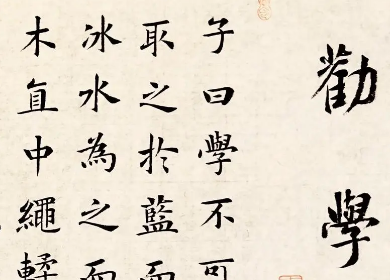 勸學
子曰學不可
取之於藍而
冰水為之而
木直中繩輮